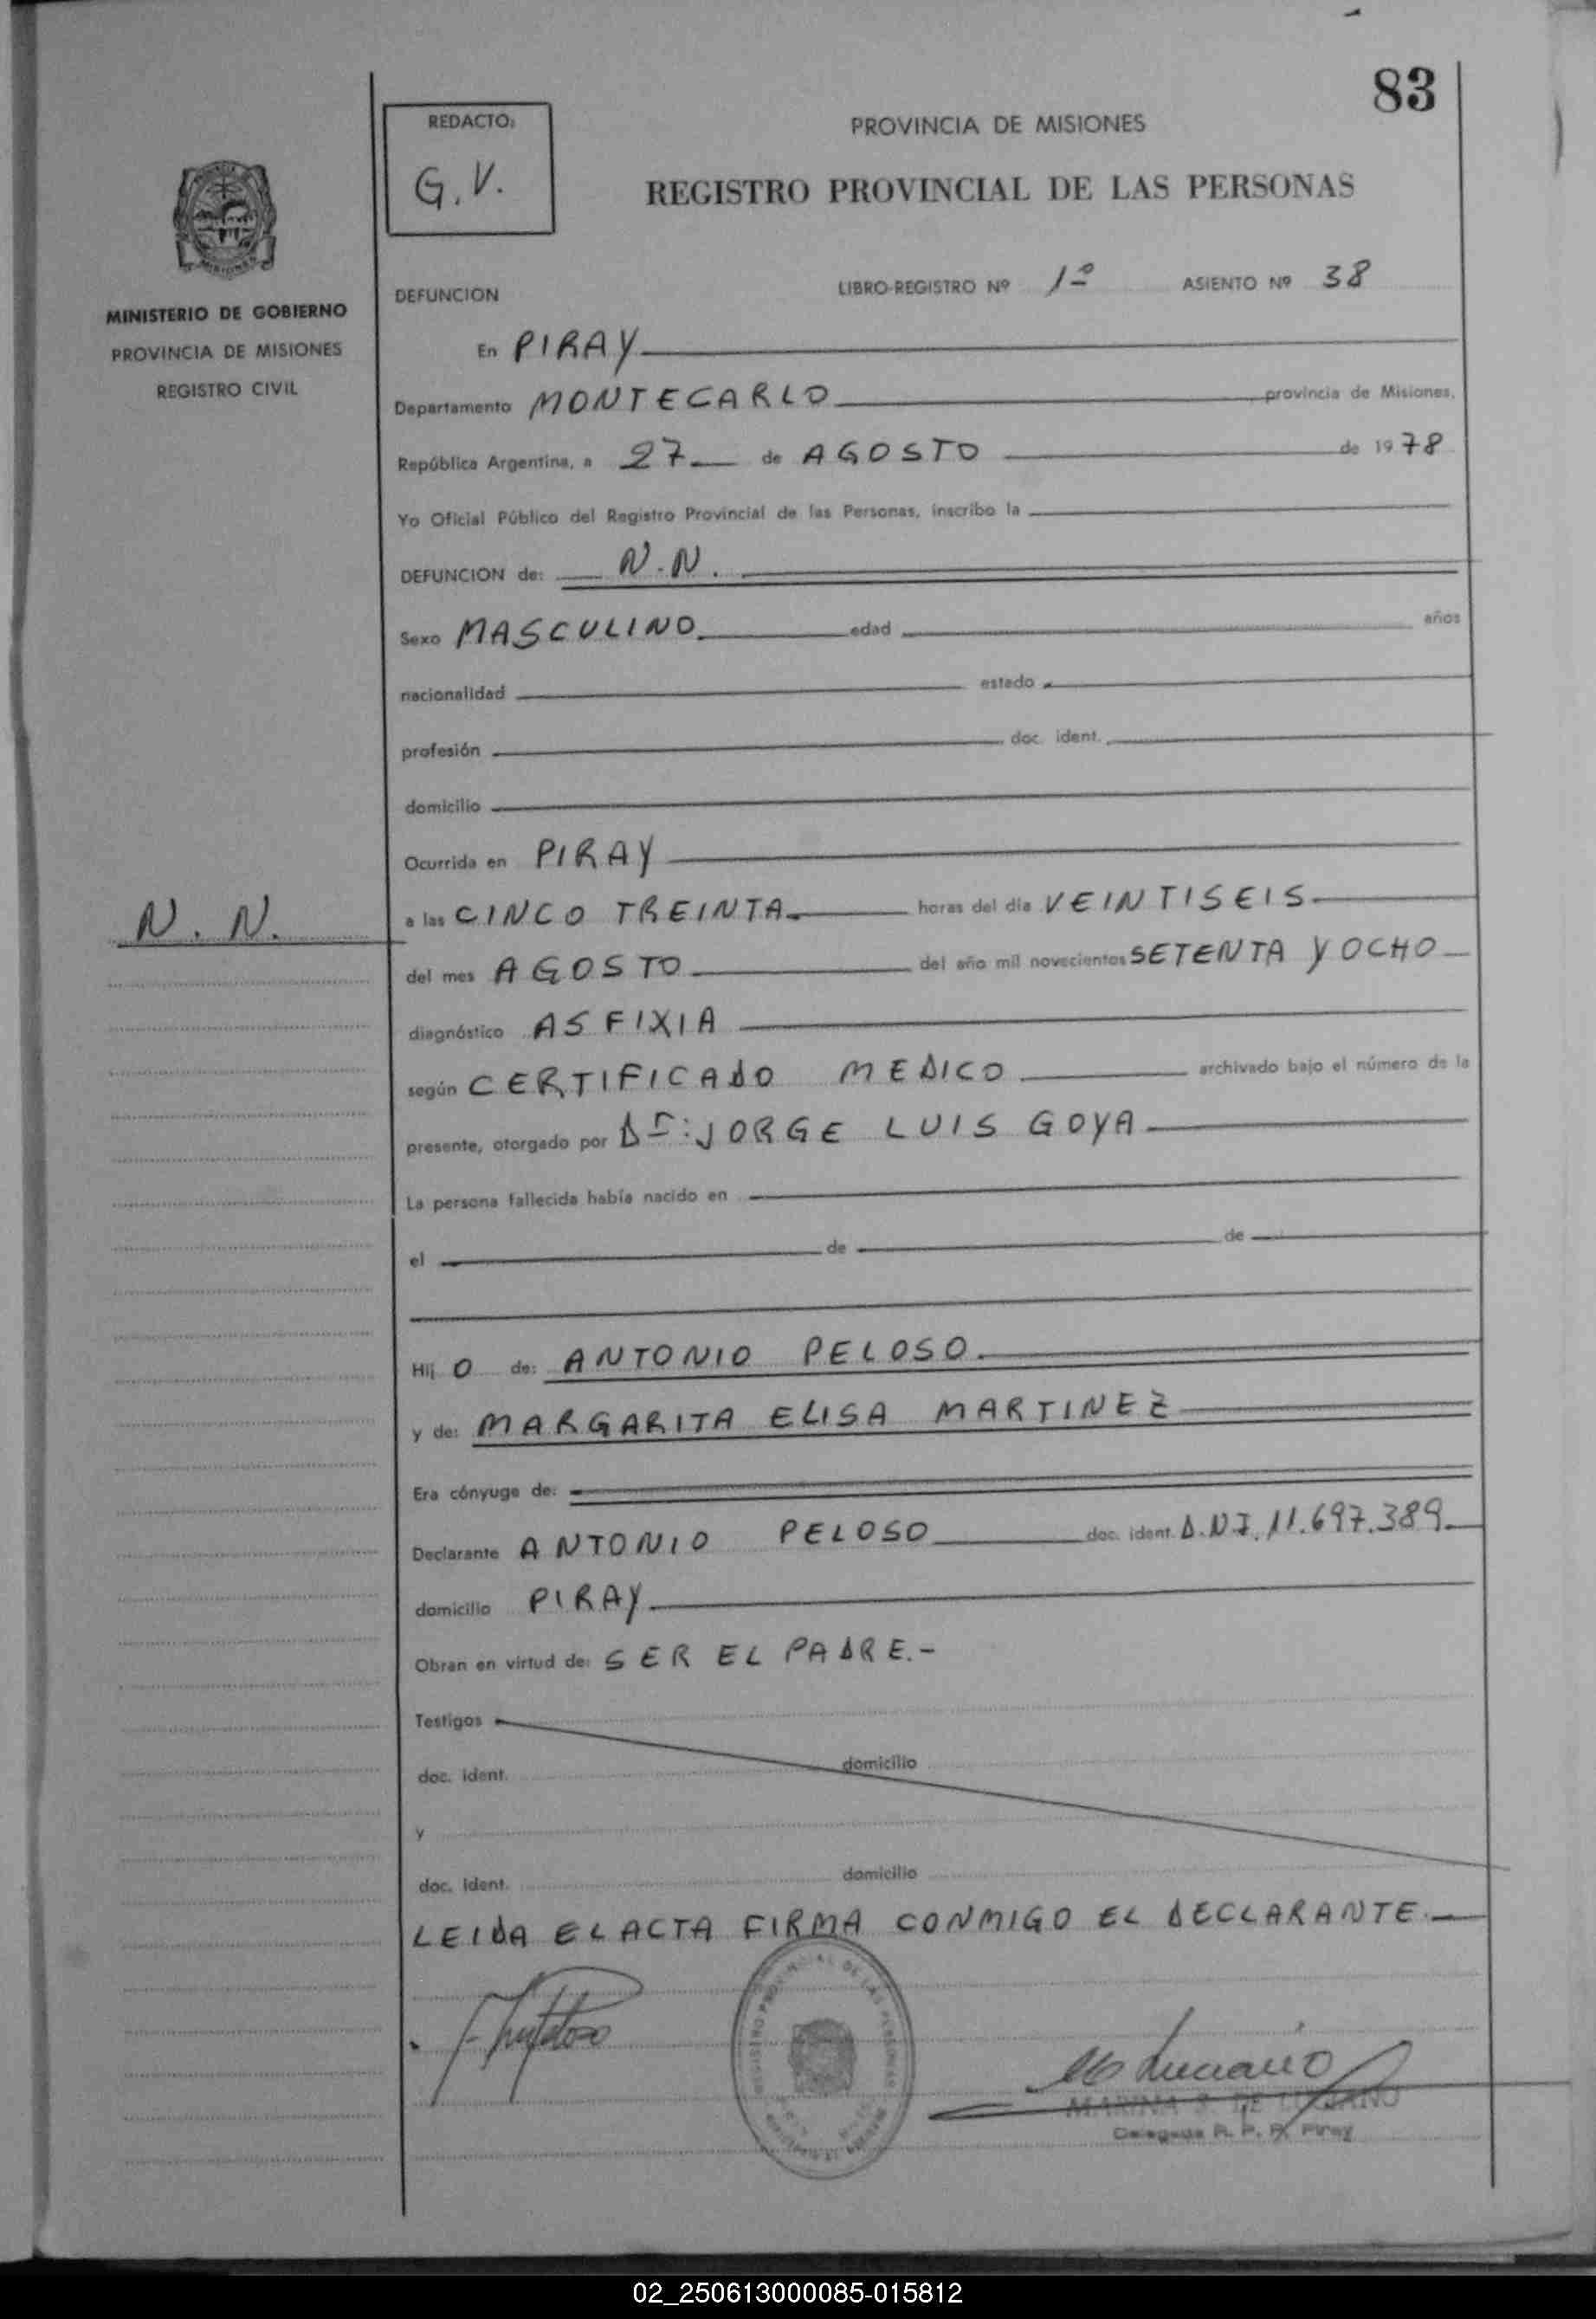 83
REDACTO:
G.V.
PROVINCIA DE MISIONES
REGISTRO PROVINCIAL DE LAS PERSONAS
MINISTERIO DE GOBIERNO
PROVINCIA DE MISIONES
REGISTRO CIVIL
DEFUNCION LIBRO-REGISTRO Nº 1º ASIENTO Nº 38
En PIRAY
Departamento MONTECARLO provincia de Misiones,
República Argentina, a 27 de AGOSTO de 1978
Yo Oficial Público del Registro Provincial de las Personas, inscribo la
DEFUNCION de: N.N.
Sexo MASCULINO edad años
nacionalidad estado
profesión doc. ident.
domicilio
Ocurrida en PIRAY
N. N.
a las CINCO TREINTA horas del día VEINTISEIS
del mes AGOSTO del año mil novecientos SETENTA Y OCHO
diagnóstico ASFIXIA
según CERTIFICADO MEDICO archivado bajo el número de la
presente, otorgado por Dr: JORGE LUIS GOYA
La persona fallecida había nacido en
el de de
Hij O de: ANTONIO PELOSO
y de: MARGARITA ELISA MARTINEZ
Era cónyuge de:
Declarante ANTONIO PELOSO doc. ident. D.N.I. 11.697.389
domicilio PIRAY
Obran en virtud de: SER EL PADRE.-
Testigos
doc. ident. domicilio
y
doc. ident. domicilio
LEIDA EL ACTA FIRMA CONMIGO EL DECLARANTE.
REGISTRO PROVINCIAL DE LAS PERSONAS
MARINA S. DE LUCIANO
Delegada R. P. P. Piray
02_250613000085-015812